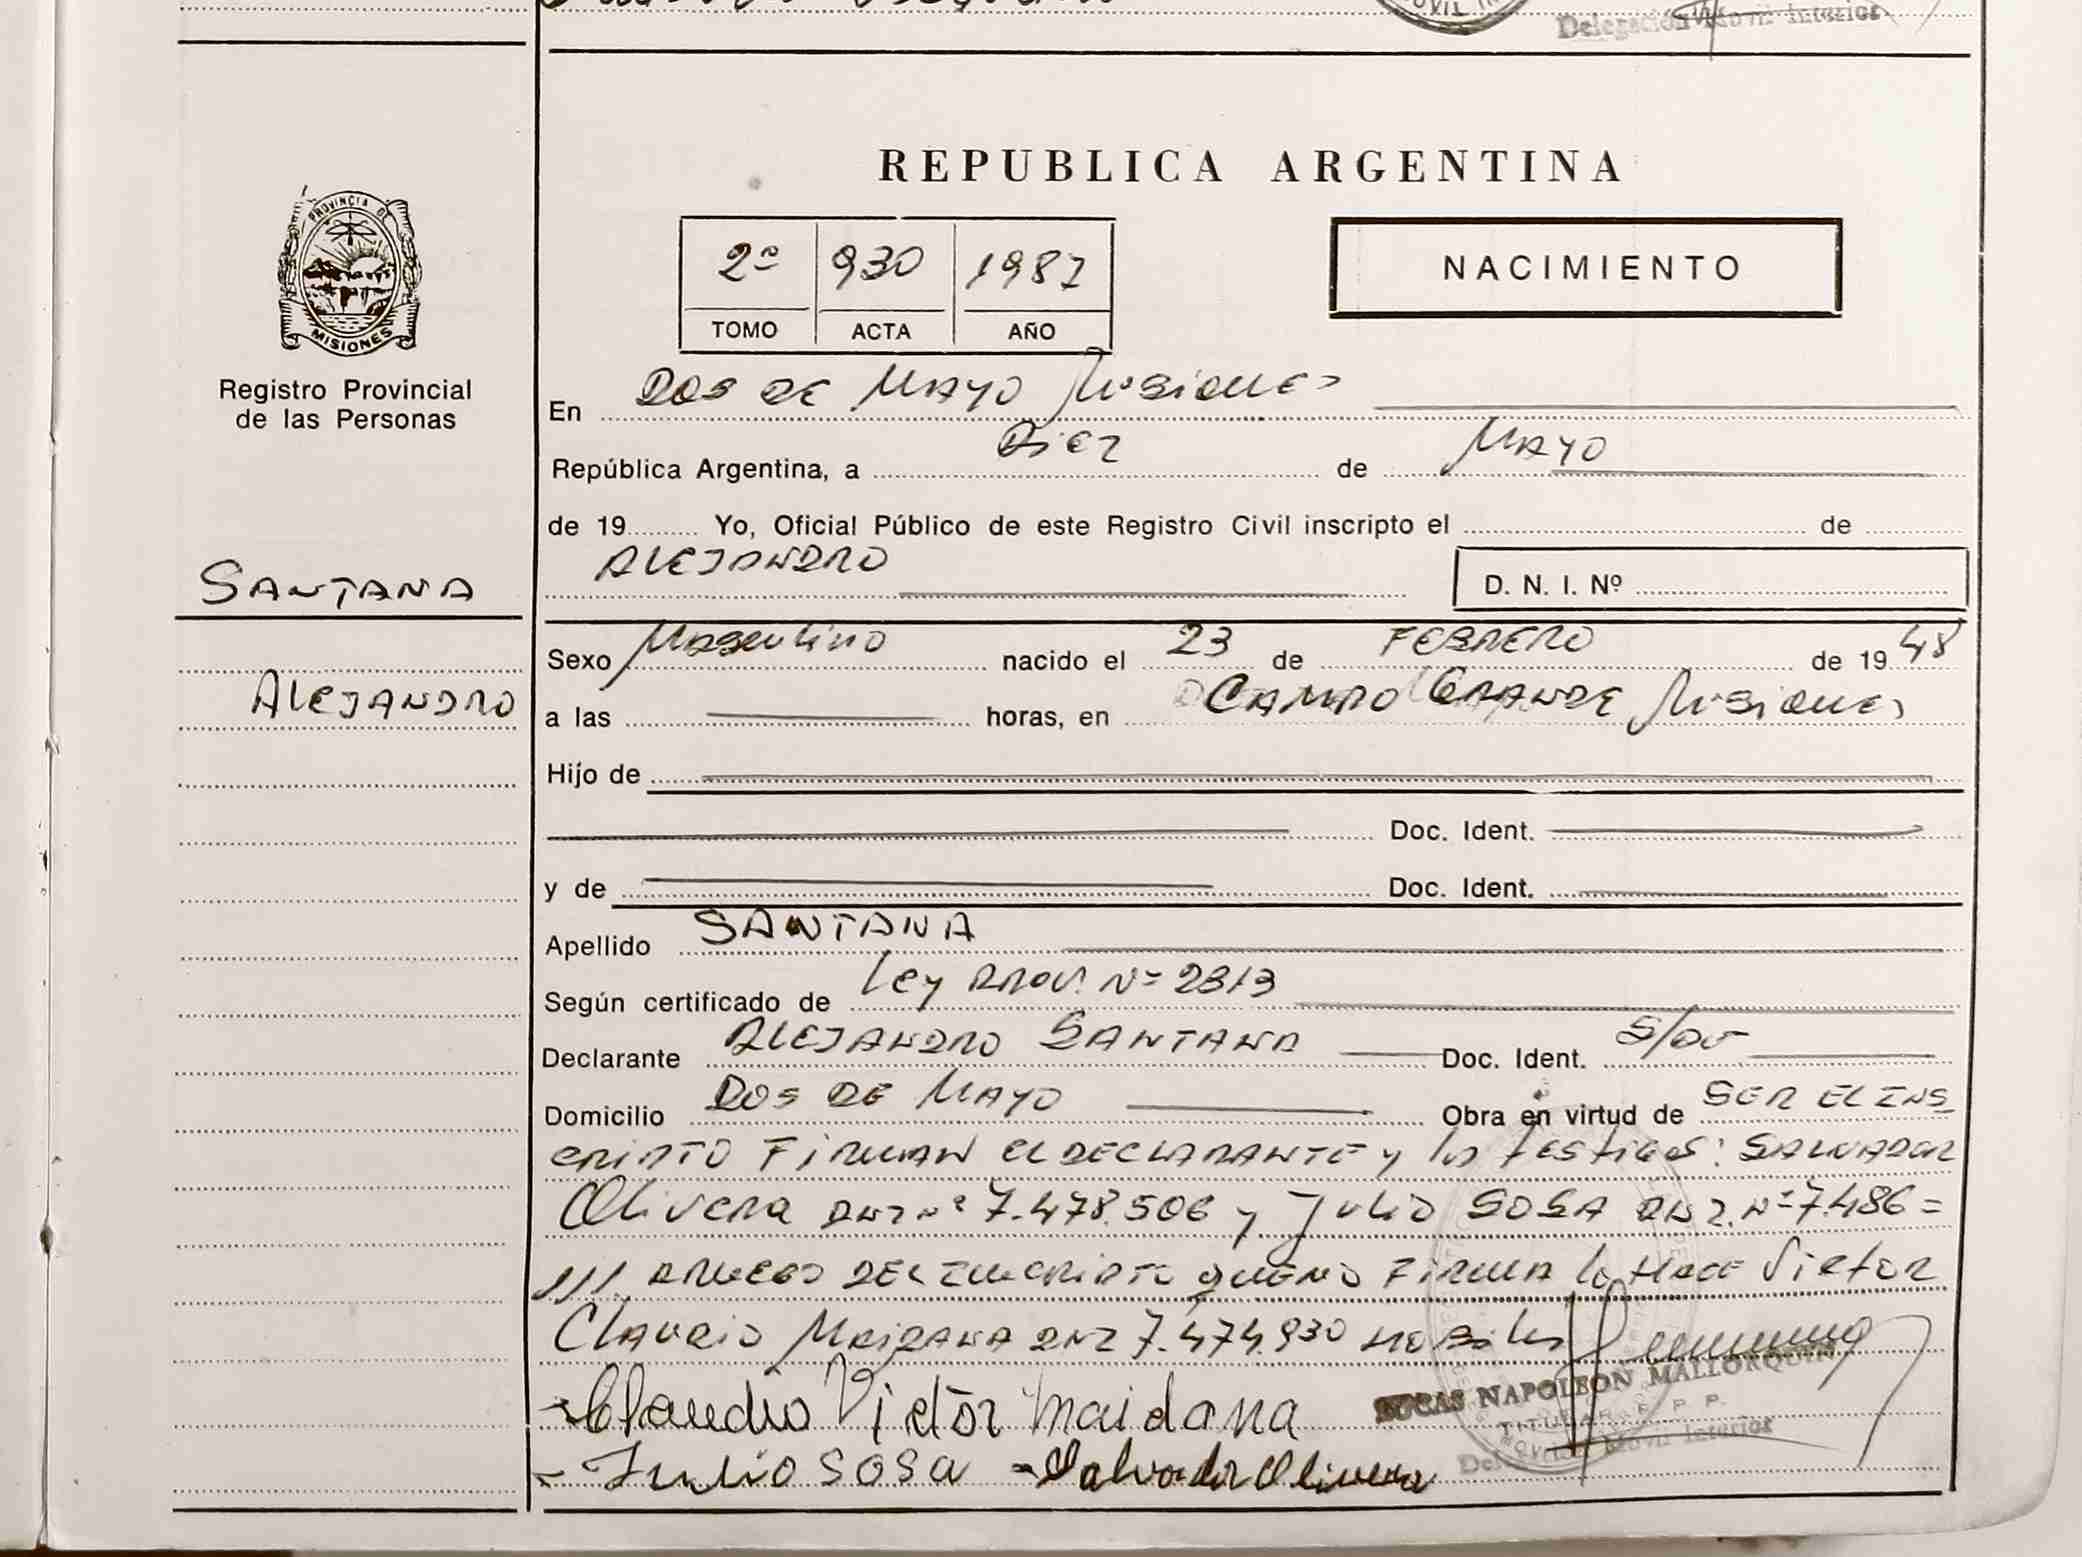 Delegación Móvil Interior
REPUBLICA ARGENTINA
PROVINCIA DE
MISIONES
Registro Provincial
de las Personas
2º 930 1987
TOMO ACTA AÑO
NACIMIENTO
En DOS DE MAYO Misiones
República Argentina, a Diez de MAYO
de 19 Yo, Oficial Público de este Registro Civil inscripto el de
ALEJANDRO
D. N. I. Nº
SANTANA
ALEJANDRO
Sexo Masculino nacido el 23 de FEBRERO de 19 48
a las horas, en CAMPO GRANDE Misiones
Hijo de
Doc. Ident.
y de Doc. Ident.
Apellido SANTANA
Según certificado de Ley PROV. Nº 2813
Declarante ALEJANDRO SANTANA Doc. Ident.
Domicilio DOS DE MAYO Obra en virtud de SER EL INS
CRIPTO FIRMAN EL DECLARANTE y los testigos: SALVADOR
Olivera DNI Nº 7.478.506 y Julio SOSA DNI. Nº 7.486=
///. A RUEGO DEL INSCRIPTO QUE NO FIRMA lo HACE Victor
Claudio MAIDANA DNI 7.474.930
LUCAS NAPOLEON MALLORQUIN
TITULAR R. P. P.
Delegación Móvil Interior
- Claudio Victor Maidana
- Julio SOSA - Salvador Olivera